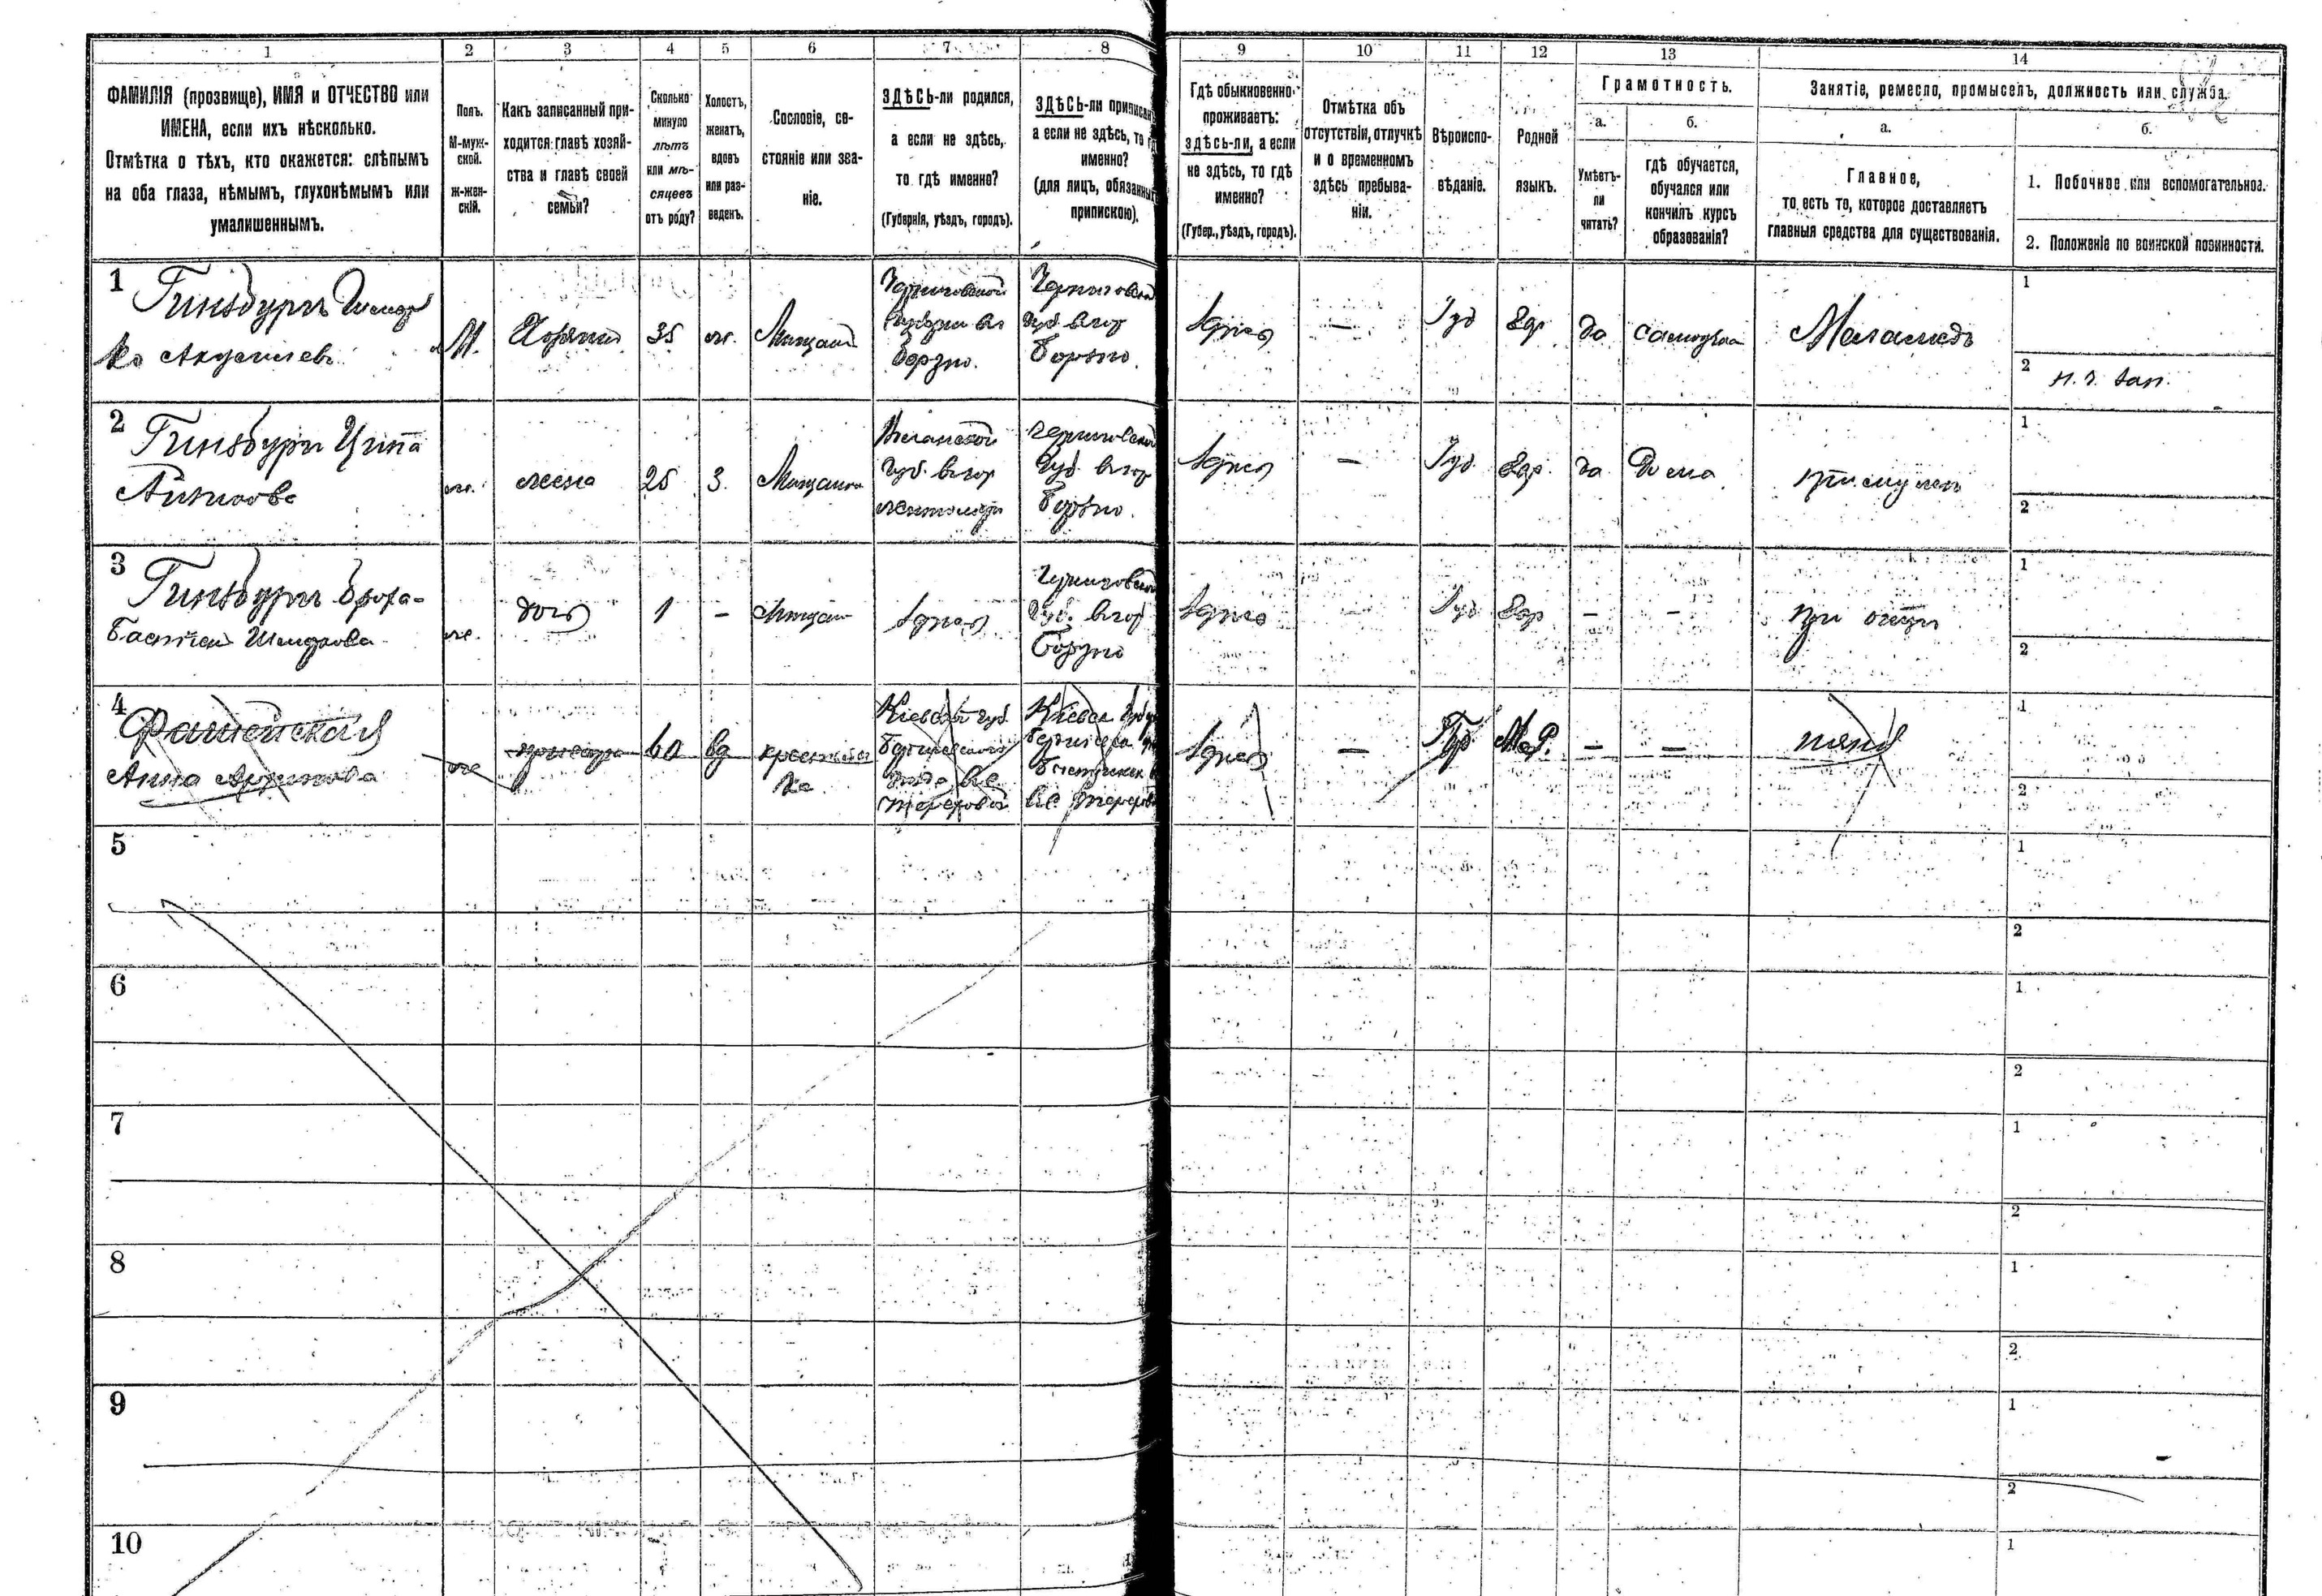 1 2 3 4 5 6 7 8 9 10 11 12 13 14
ФАМИЛІЯ (прозвище), ИМЯ и ОТЧЕСТВО или
ИМЕНА, если ихъ нѣсколько.
Отмѣтка о тѣхъ, кто окажется: слѣпымъ
на оба глаза, нѣмымъ, глухонѣмымъ или
умалишеннымъ.
Полъ.
М-муж-
ской.
ж-жен-
скій.
Какъ записанный при-
ходится главѣ хозяй-
ства и главѣ своей
семьи?
Сколько
минуло
лѣтъ
или мѣ-
сяцевъ
отъ роду?
Холостъ,
женатъ,
вдовъ
или раз-
веденъ.
Сословіе, со-
стояніе или зва-
ніе.
ЗДѢСЬ-ли родился,
а если не здѣсь,
то гдѣ именно?
(Губернія, уѣздъ, городъ).
ЗДѢСЬ-ли приписан
а если не здѣсь, то гд
именно?
(для лицъ, обязанных
припискою).
Гдѣ обыкновенно
проживаетъ:
здѣсь-ли, а если
не здѣсь, то гдѣ
именно?
(Губер., уѣздъ, городъ).
Отмѣтка объ
отсутствіи, отлучкѣ
и о временномъ
здѣсь пребыва-
ніи.
Вѣроиспо-
вѣданіе.
Родной
языкъ.
Грамотность.
а.
Умѣетъ-
ли
читать?
б.
гдѣ обучается,
обучался или
кончилъ курсъ
образованія?
Занятіе, ремесло, промыселъ, должность или служба.
а.
Главное,
то есть то, которое доставляетъ
главныя средства для существованія.
б.
1. Побочное или вспомогательное.
2. Положеніе по воинской повинности.
1
Гинзбургъ
М.
Хозяинъ
35
ж.
Мѣщан
Черниговской
Борзно.
Черниговской
Губ. в гор
Борзно.
здѣсь
—
Іуд
Евр
да
самоучка
Меламедъ
1
2
2
Гинзбургъ Ципа
ж.
жена
25
З.
Мѣщанка
Губ. в гор
Черниговской
Губ. в гор
Борзно.
здѣсь
—
Іуд
Евр.
да
Дома
при мужѣ
1
2
3
Гинзбургъ Броха-
ж.
дочь
1
–
Мѣщан
здѣсь
Черниговской
Губ. в гор
Борзно
здѣсь
—
Іуд
Евр
–
–
при отцѣ
1
2
4
Анна
ж
прислуга
60
вд
крестьян
ка
Кіевской губ
Кіевск
здѣсь
—
М.Р.
—
—
няня
1
2
5
1
2
6
1
2
7
1
2
8
1
2
9
1
2
10
1